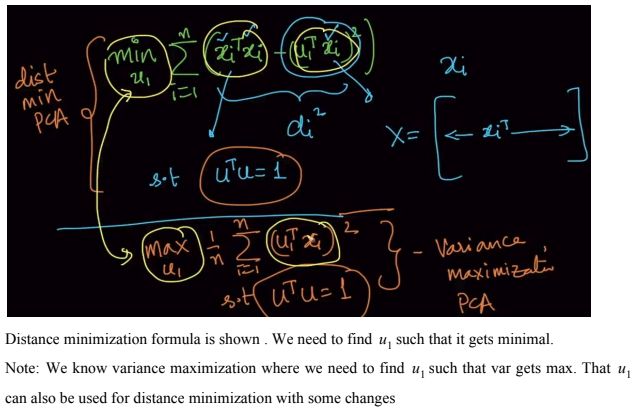 dist
min
PCA
min
u₁
n
Σ
i=1
(xᵢᵀxᵢ - (u₁ᵀ xᵢ)²)
dᵢ²
s.t uᵀu = 1
xᵢ
X = [ ← xᵢᵀ → ]
max
u₁
1/n
n
Σ
i=1
(u₁ᵀ xᵢ)²
s.t uᵀu = 1
- Variance
maximization
PCA
Distance minimization formula is shown . We need to find u₁ such that it gets minimal.
Note: We know variance maximization where we need to find u₁ such that var gets max. That u₁
can also be used for distance minimization with some changes